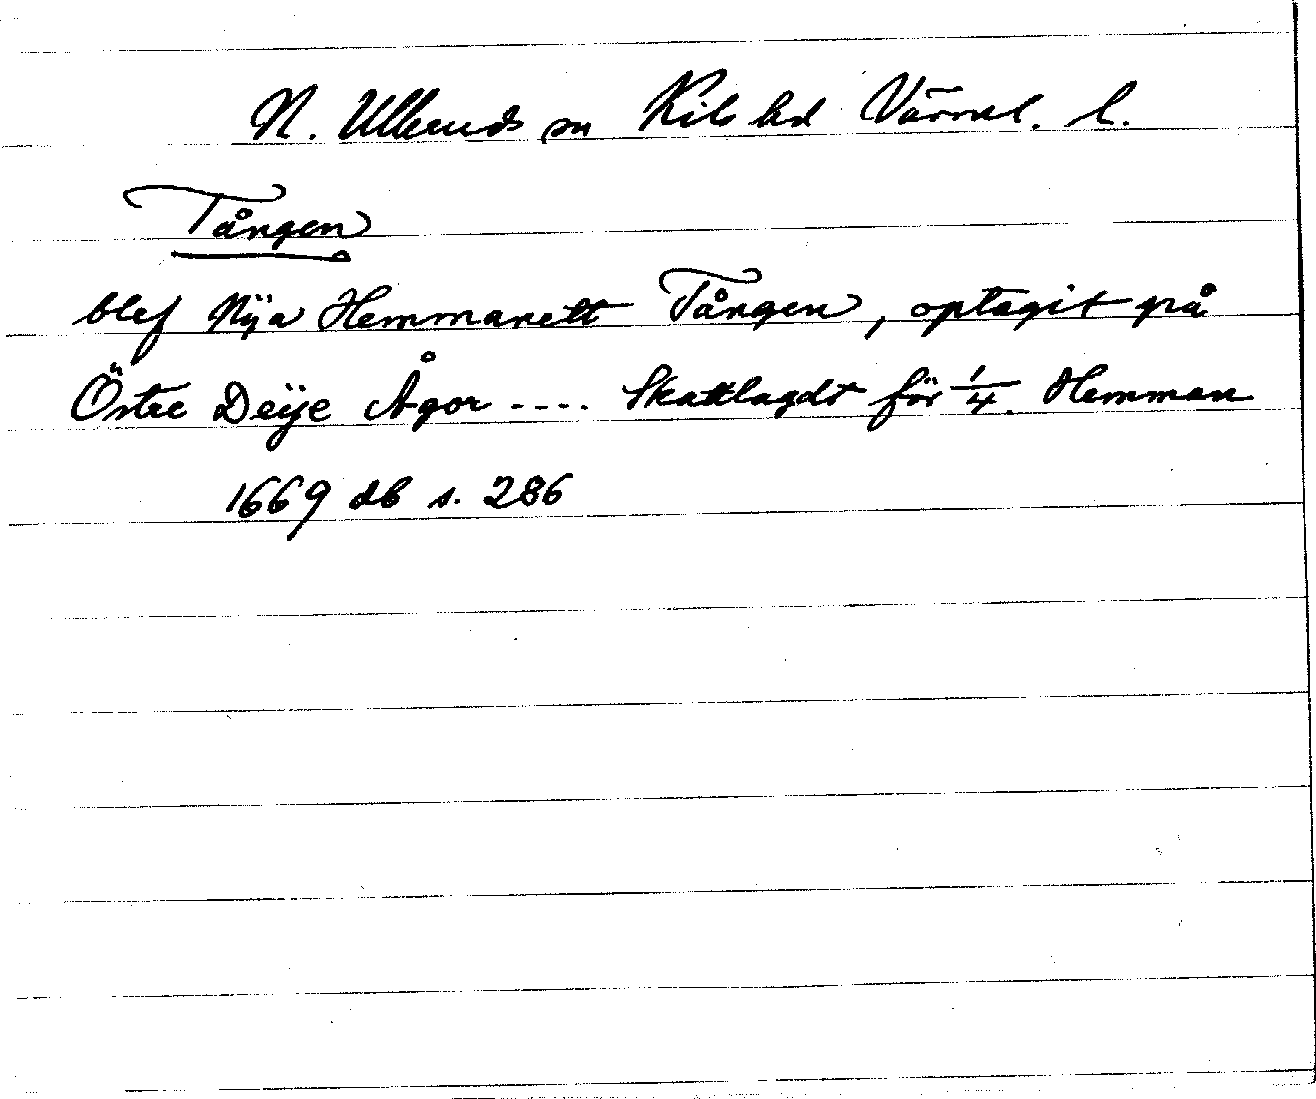 N. Ulleruds sn Kils hd Värml. l.
Tången
blef Nÿa Hemmanett Tången, optagit på
Östre Deÿe Ågor .... Skattlagdt för 1/4 Hemman
1669 db s. 286